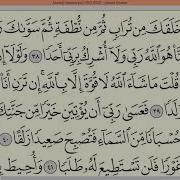 خَلَقَكَ مِن تُرَابٍ ثُمَّ مِن نُّطْفَةٍ ثُمَّ سَوَّىٰكَ
هُوَ ٱللَّهُ رَبِّى وَلَآ أُشْرِكُ بِرَبِّىٓ أَحَدًا ٣٨ وَلَوْلَآ إِ
قُلْتَ مَا شَآءَ ٱللَّهُ لَا قُوَّةَ إِلَّا بِٱللَّهِ إِن تَرَنِ أَنَا۠
٣٩ فَعَسَىٰ رَبِّىٓ أَن يُؤْتِيَنِ خَيْرًا مِّن جَنَّتِكَ
حُسْبَانًا مِّنَ ٱلسَّمَآءِ فَتُصْبِحَ صَعِيدًا زَلَقًا ٤٠
غَوْرًا فَلَن تَسْتَطِيعَ لَهُۥ طَلَبًا ٤١ وَأُحِيطَ بِ